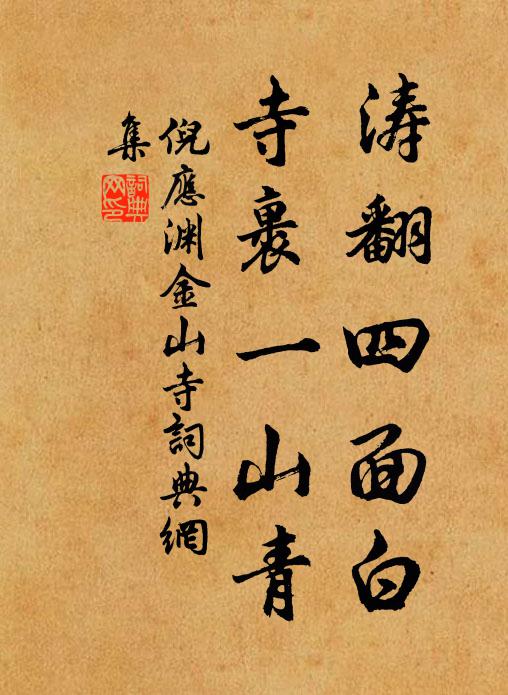 涛翻四面白
寺裏一山青
倪應渊金山寺詞典網
集
詞典
网印